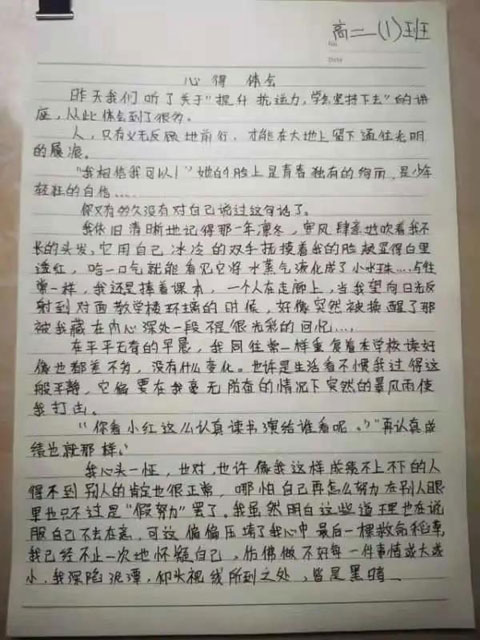 高二(1)班
心得 体会
昨天我们听了关于"提升抗逆力,学会坚持下去"的讲
座,从此体会到了很多。
人,只有义无反顾地前行,才能在大地上留下通往光明
的履痕。
"我相信我可以!"她的脸上是青春独有的绚丽,是少年
轻狂的自信....
你又有多久没有对自己说过这句话了。
我依旧清晰地记得那一年凛冬,寒风肆意地吹着我不
长的头发,它用自己冰冷的双手抚摸着我的脸颊显得白里
透红,哈一口气就能看见它将水蒸气液化成了小水珠....与往
常一样,我还是捧着课本,一个人在走廊上,当我望向日光反
射到对面教学楼玻璃的时候,好像突然被摇醒了那
被我藏在内心深处一段不是很光彩的回忆....
在平平无奇的早晨,我同往常一样重复着来学校读好
像也都差不多,没有什么变化。也许是生活看不惯我过得这
般平静,它偏要在我毫无防备的情况下突然的暴风雨使
我打击。
"你看小红这么认真读书演给谁看呢。""再认真成
绩也就那样。"
我心头一怔,也对,也许像我这样成绩不上不下的人
得不到别人的肯定也很正常,哪怕自己再怎么努力在别人眼
里也只不过是"假努力"罢了。我虽然明白这些道理也在说
服自己不去在意,可这偏偏压垮了我心中最后一棵救命稻草,
我已经不止一次地怀疑自己,仿佛做不好每一件事情或大或
小,我深陷泥潭,仰头视线所到之处,皆是黑暗